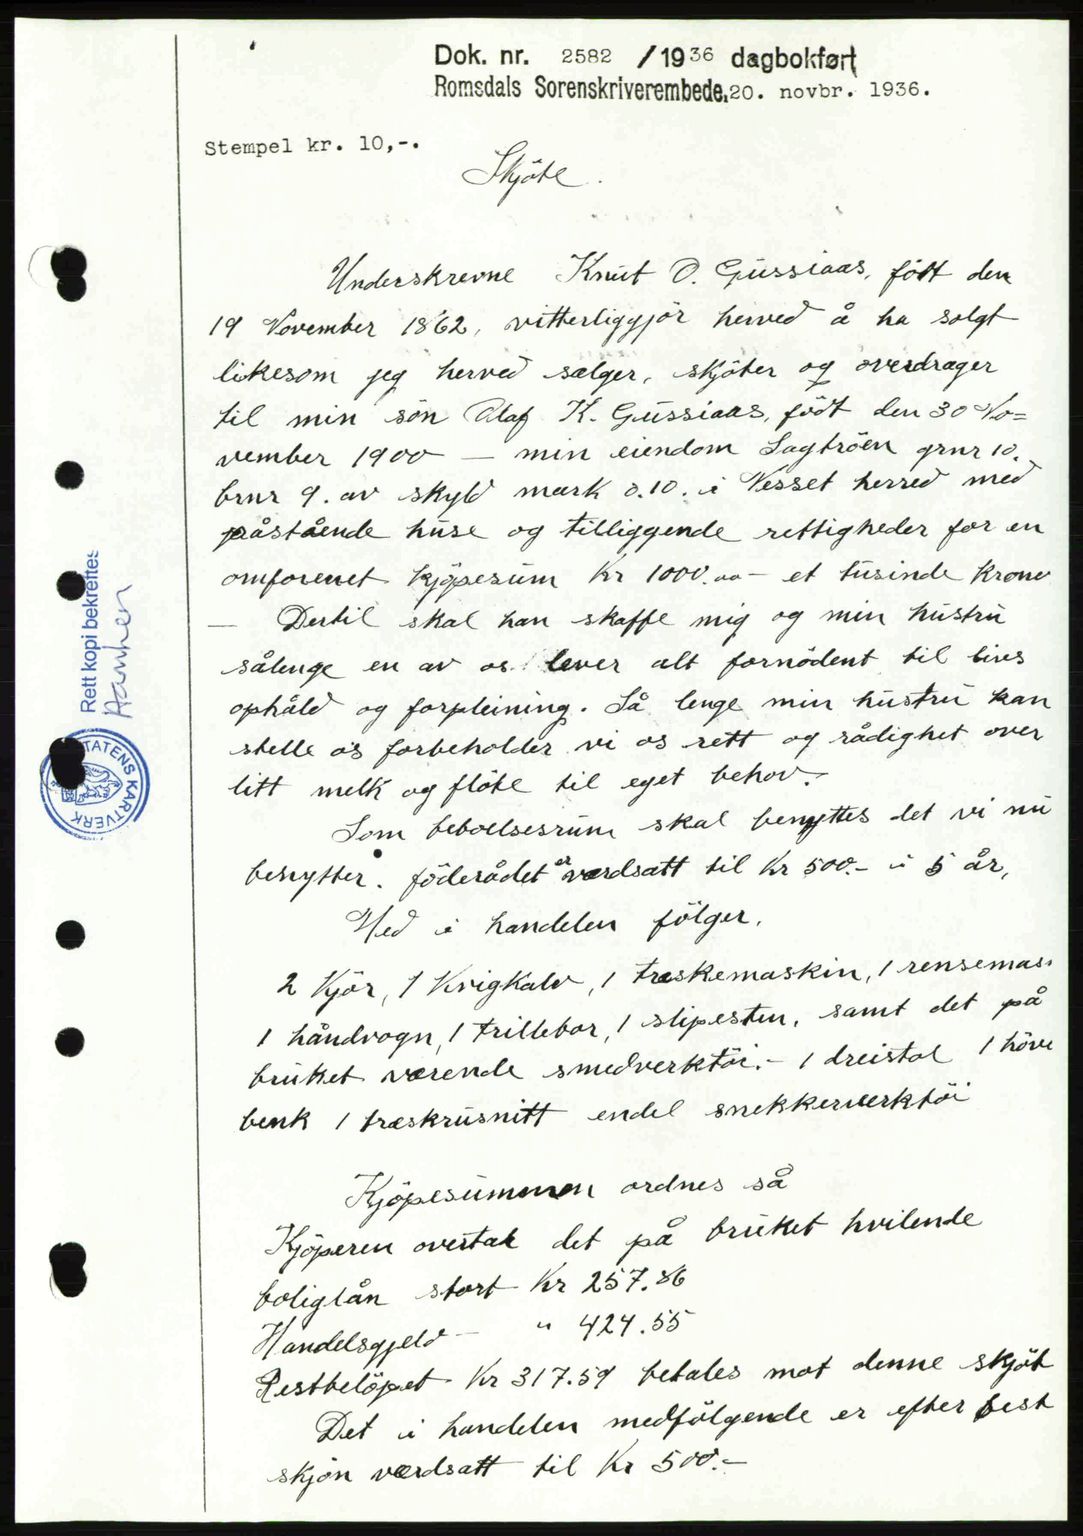 Dok. nr. 2582 / 1936 dagbokført
Romsdals Sorenskriverembede. 20. novbr. 1936.
Stempel kr. 10,-.
Skjöte.
Underskrevne Knut O. Gussiaas, född den
19 November 1862, vitterliggjör herved å ha solgt
likesom jeg herved sælger, skjöter og overdrager
til min sön Olaf K. Gussiaas, född den 30 No=
vember 1900 — min eiendom Lagtröen grnr 10.
brnr 9. av skyld mark 0.10. i Nesset herred med
påstående huse og tilliggende rettigheder for en
omforenet kjöpesum Kr 1000.00 – et tusinde kroner
— Dertil skal han skaffe mig og min hustru
sålenge en av os lever alt fornödent til livs
ophåld og forpleining. Så lenge min hustru kan
stelle os forbeholder vi os rett og rådighet over
litt melk og flöte til eget behov.–
Som beboelsesrum skal benyttes det vi nu
benytter. föderådet er værdsatt til Kr 500.– i 5 år,
Med i handelen fölger.
2 Kjör, 1 Kvigkalv, 1 træskemaskin, 1 rensemas
1 håndvogn, 1 trillebor, 1 slipesten, samt det på
bruket værende smedverktöi.– 1 dreistol 1 hövel
benk 1 træskrusnitt endel snekkerverktöi
Kjöpesummen ordnes så
Kjöperen overtar det på bruket hvilende
boliglån stort Kr 257.86
Handelsgjeld – " 424.55
Restbelöpet Kr 317.59 betales mot denne skjöt
Det i handelen medfölgende er efter best
skjön værdsatt til Kr 500.–
Rett kopi bekreftes
STATENS KARTVERK